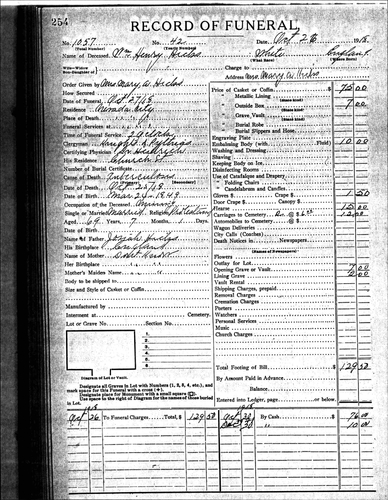 254
RECORD OF FUNERAL
No. 1057 No. 42 Date, Oct 26 1918
Name of Deceased, Wm Henry White
(What Race)
Wife—Widow
Son-Daughter of Charge to
Order Given by Mrs Mary A. Address Mrs. Mary A.
How Secured Price of Casket or Coffin $ 75 00
Date of Funeral Oct 27/18 Metallic Lining
Residence Nevada City " Outside Box 7 00
Place of Death " Grave Vault
Funeral Services at " Burial Robe
Time of Funeral Service 2 Oclock " Burial Slippers and Hose
Clergyman Knights of Pythias Engraving Plate
Certifying Physician Embalming Body (with Fluid) 10 00
His Residence Church St Washing and Dressing
Number of Burial Certificate Shaving
Cause of Death Tuberculosis Keeping Body on Ice
Date of Death Oct 26/18 Disinfecting Rooms
Date of Birth Mar 29 1849 Use of Catafalque and Drapery
Occupation of the Deceased Mining " Folding Chairs
Single or Married Married Religion Protestant " Candelabrum and Candles
Aged 69 Years 7 Months Days Gloves $ Crape $ 1 50
Name of Father Josiah Door Crape $ Canopy
His Birthplace England Hearse 15 00
Name of Mother Dont Know Carriages to Cemetery @ $6.00 12 00
Her Birthplace " Automobiles to Cemetery @ $
Mother's Maiden Name " Wagon Deliveries
Body to be shipped to City Calls (Coaches)
Size and Style of Casket or Coffin Death Notices in Newspapers
(Names of Newspapers)
Flowers
Outlay for Lot
Opening Grave or Vault 7 00
Lining Grave 2 00
Vault Rental
Manufactured by Shipping Charges, prepaid
Interment at Cemetery Removal Charges
Lot or Grave No. Section No. Cremation Charges
1 Porters
2 Watchers
3 Personal Services
4 Music
5 Church Charges
6
Total Footing of Bill $ 129 50
Diagram of Lot or Vault. By Amount Paid in Advance
Designate all Graves in Lot with Numbers (1, 2, 3, 4, etc.), and
mark space for this Funeral with a cross (+). Balance
Designate place for Monument with a small square
Use space to the right of Diagram for the names of those buried
in Lot. Entered into Ledger, page or below $
1918 1918
Oct 26 To Funeral Charges Total, $ 129 50 Oct 28 By Cash $ 76 00
10 00